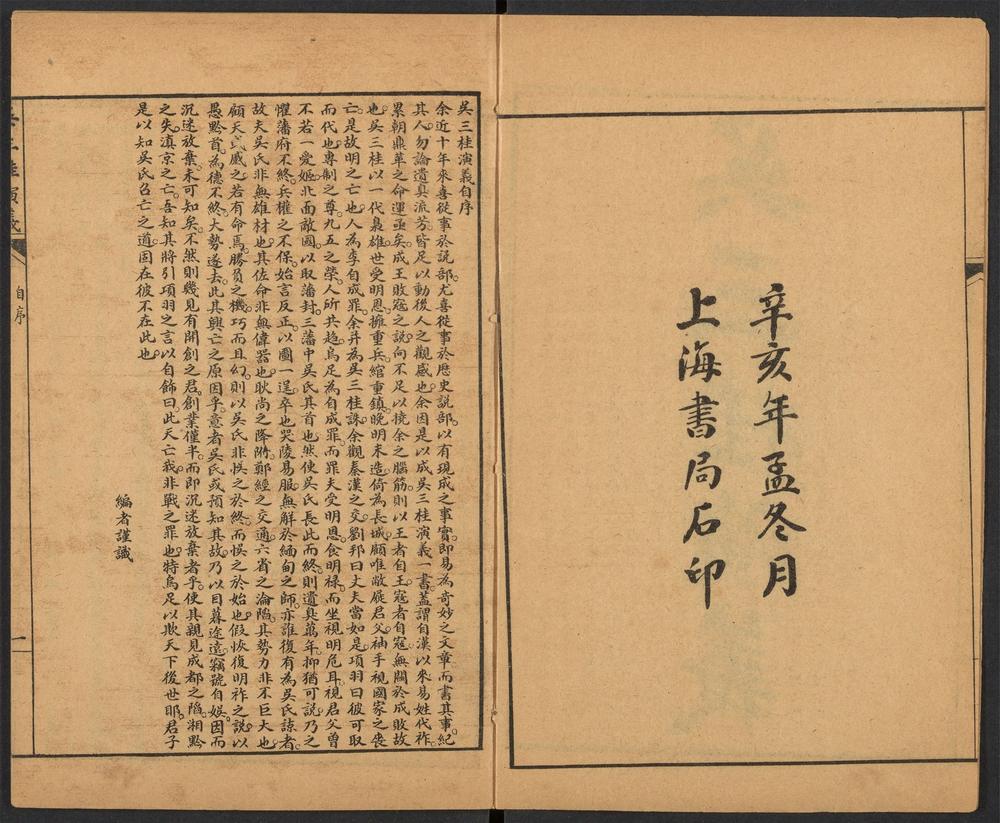 辛亥年孟冬月
上海書局石印
吳三桂演義自序
余近十年來喜從事於說部尤喜從事於歷史說部以有現成之事實即易為奇妙之文章而書其事紀
其人勿論遺臭流芳皆足以動後人之觀感也余因是以成吳三桂演義一書蓋謂自漢以來易姓代祚
累朝鼎革之命運亟矣成王敗寇之說向不足以撓余之腦筋則以王者自王寇者自寇無關於成敗故
也吳三桂以一代梟雄世受明恩擁重兵綰重鎮晚明末造倚為長城顧唯敝屣君父袖手視國家之喪
亡是故明之亡也人為李自成罪余并為吳三桂誅余觀秦漢之交劉邦曰丈夫當如是項羽曰彼可取
而代也專制之尊九五之榮人所共趨烏足為自成罪而罪夫受明恩食明祿而坐視明危耳視君父曾
不若一愛姬北面敵國以取藩封三藩中吳氏其首也然使吳氏長此而終則遺臭萬年抑猶可說乃之
懼藩府不終兵權之不保始言反正以圖一逞卒也哭陵易服無解於緬甸之師亦誰復有為吳氏諒者
故夫吳氏非無雄材也其佐命非無偉器也耿尚之降附鄭經之交通六省之淪陷其勢力非不巨大也
顧天弍感之若有命焉勝負之機巧而且幻則以吳氏非悮之於終而悮之於始也假恢復明祚之說以
愚黔首為德不終大勢遂去此其興亡之原因乎意者吳氏或預知其故乃以日暮途遠竊號自娛因而
沉迷放棄未可知矣不然則幾見有開創之君創業僅半而即沉迷放棄者乎使其親見成都之陷湘黔
之失滇京之亡吾知其將引項羽之言以自飾曰此天亡我非戰之罪也特烏足以欺天下後世耶君子
是以知吳氏召亡之道固在彼不在此也
編者謹識
自序
一